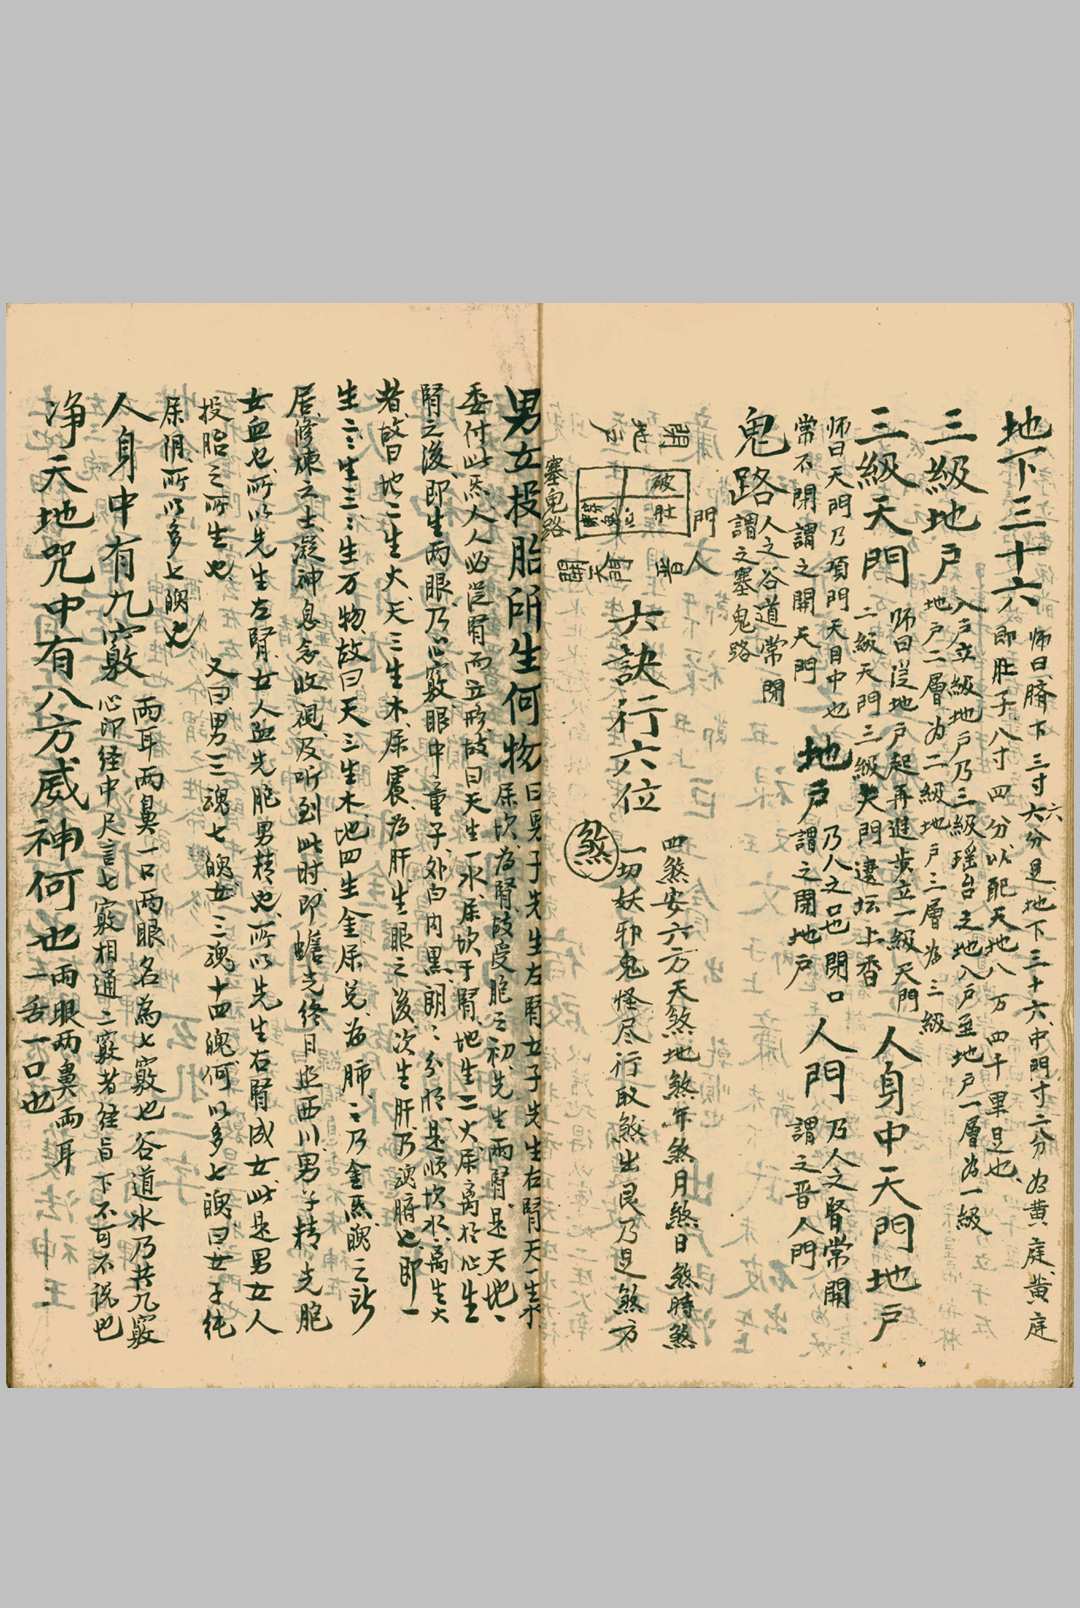 地下三十六
師曰臍下三寸六分是地下三十六中門寸二分为黄庭黄庭
六
即肚子八寸四分以配天地八万四千里是也
三級地戸
八戸立級地戸乃三級瑶台之地八戸並地戸一層為一級
地戸二層为二級地戸三層為三級
三級天門
師曰従地戸起再進步立一級天門
二級天門三級天門遶坛上香
人身中天門地戸
師曰天門乃項門天目中也
常不開謂之開天門
地戸
乃人之口也閉口
謂之閉地戸
人門
乃人之腎常開
謂之晋人門
鬼路
人之谷道常閉
謂之塞鬼路
破肚
門
人
塞鬼路
六訣行六位
四煞安六方天煞地煞年煞月煞日煞時煞
一切妖邪鬼怪尽行取煞出艮乃是煞方
煞
男女投胎所生何物
曰男子先生左腎女子先生右腎天一生水
属坎为腎故受胞之初先生兩腎是天地一
委付此炁人人必從腎而立形故曰天生一水属坎于腎地生二火属离於心生
腎之後即生兩眼乃心竅眼中童子外白内黒朗朗分形是順坎水离生火
者故曰地二生火天三生木属震为肝生眼之後次生肝乃魂腑也即一
生二二生三三生万物故曰天三生木地四生金属兌为肺肺乃金炁魄之所
居修煉之士凝神息念收視及听到此時即蟾光终日照西川男子精先胞
女血也所以先生左腎女人血先胞男精也所以先生右腎成女此是男女人
投胎之所生也
又曰男三魂七魄女三魂十四魄何以多七魄曰女子純
属阴所以多七魄也
人身中有九竅
兩耳兩鼻一口兩眼名為七竅也谷道水乃共九竅
心印经中只言七竅相通二竅者往旨下不可不説也
净天地咒中有八方威神何也
兩眼兩鼻兩耳
一舌一口也